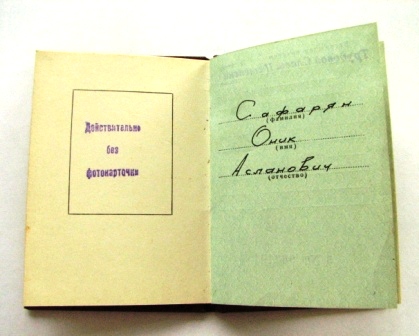 Действительно
без
фотокарточки
Сафарян
(фамилия)
Оник
(имя)
Асланович
(отчество)